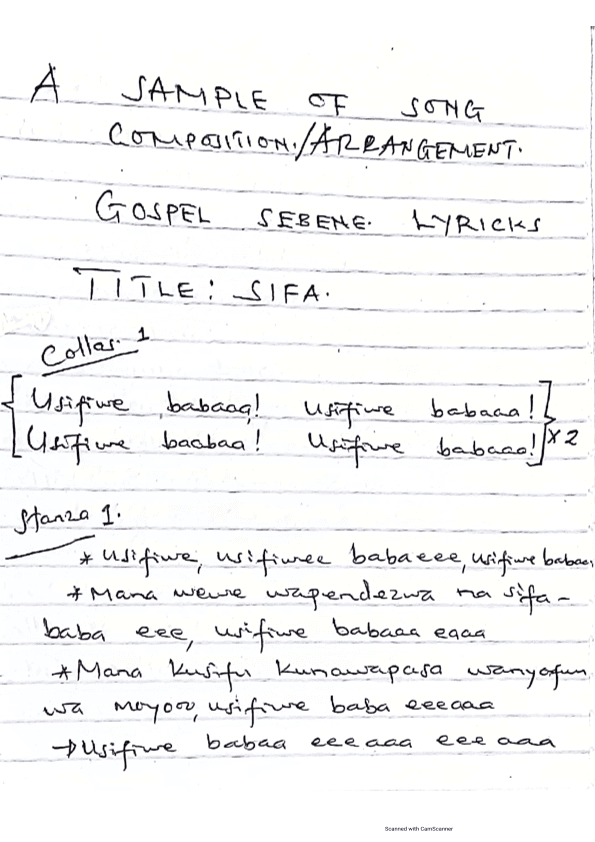 A SAMPLE OF SONG
COMPOSITION./ARRANGEMENT.
GOSPEL SEBENE. LYRICKS
TITLE: SIFA.
Collas. 1
Usifiwe babaaa! Usifiwe babaaa!
Usifiwe baabaa! Usifiwe babaaa! x2
Stanza 1.
* Usifiwe, usifiwee babaeee, usifiwe babaa,
* Mana wewe wapendezwa na sifa-
baba eee, usifiwe babaaa eaaa
* Mana kusifu kunawapasa wanyofun
wa moyoo, usifiwe baba eeeaaa
→ Usifiwe babaa eee aaa eee aaa
Scanned with CamScanner